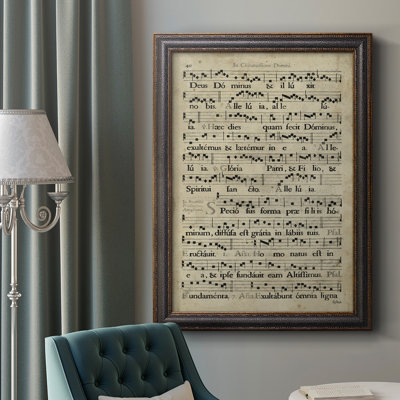 40 In Circumcisione Domini
Deus Dó minus & il lú xit
no bis. Alle lú ia, al le lú
ia. ℣. Hæc dies quam fecit Dóminus,
exultémus & lætémur in e a. Al le
lú ia. Glória Patri, & Fi lio, &
Spiritui san cto. Al le lú ia.
SPeció sus forma præ fi li is hó-
minum, diffúsa est grátia in labiis tuis. Psal.
Eructávit. Aña Ho mo natus est in
e a, & ipse fundávit eam Altíssimus. Psal.
Fundaménta. Aña Exultábunt ómnia ligna